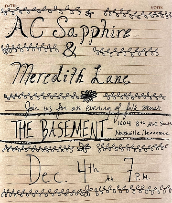 AC Sapphire
&
Meredith Lane
Join us for an evening of folk music
THE BASEMENT
1604 8th Ave South
Nashville, Tennessee
Dec. 4th 7PM